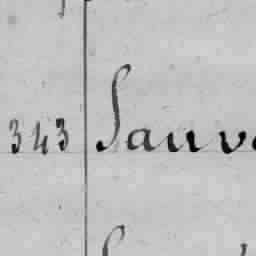 343 Sauv